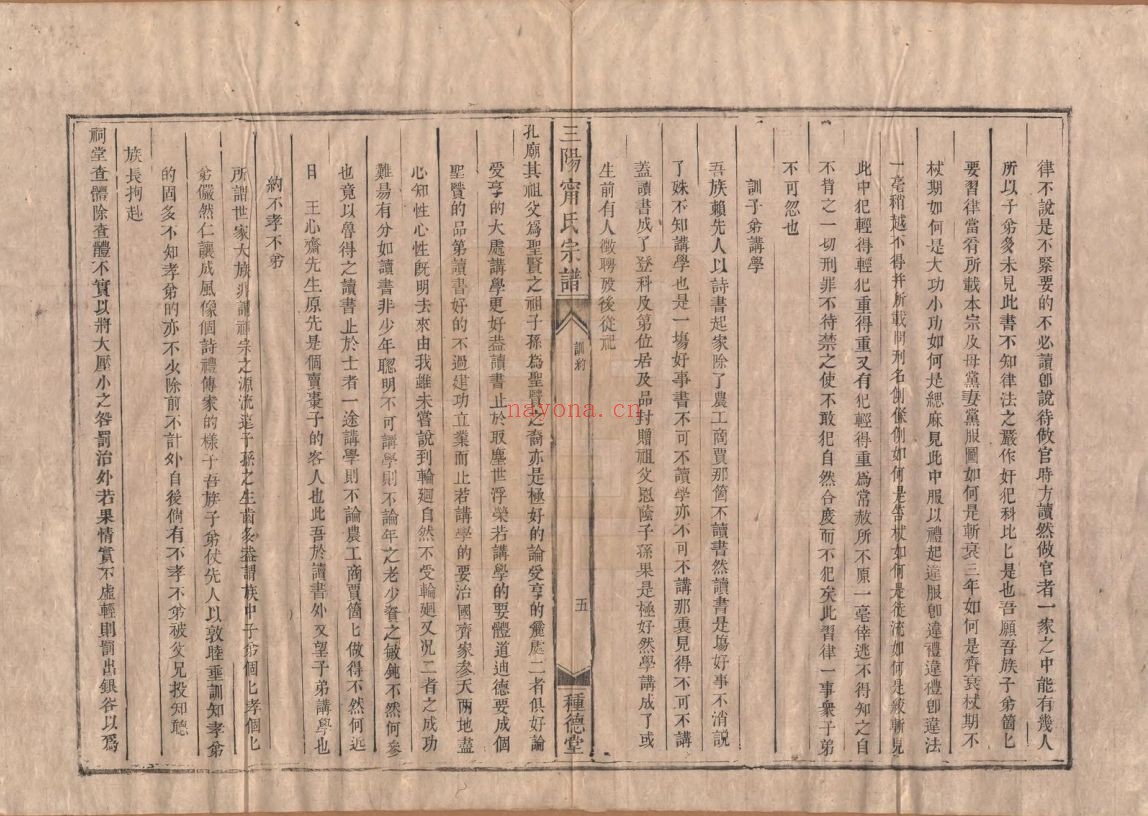 律不說是不緊要的不必讀卽說待做官時方讀然做官者一家之中能有幾人
所以子弟多未見此書不知律法之嚴作奸犯科比匕是也吾願吾族子弟箇匕
要習律當看所載本宗及母黨妻黨服圖如何是斬衰三年如何是齊衰杖期不
杖期如何是大功小功如何是緦麻見此中服以禮起違服卽違禮違禮卽違法
一毫稍越不得并所載問刑名例條例如何是笞杖如何是徒流如何是絞斬見
此中犯輕得輕犯重得重又有犯輕得重爲常赦所不原一毫倖逃不得知之自
不肯之一切刑罪不待禁之使不敢犯自然合度而不犯矣此習律一事衆子弟
不可忽也
訓子弟講學
吾族賴先人以詩書起家除了農工商賈那箇不讀書然讀書是塲好事不消說
了姝不知講學也是一塲好事書不可不讀學亦不可不講那裏見得不可不講
蓋讀書成了登科及第位居及品封贈祖父恩蔭子孫果是極好然學講成了或
生前有人徵聘歿後從祀
三陽甯氏宗譜
訓約
五
種德堂
孔廟其祖父爲聖賢之祖子孫爲聖賢之裔亦是極好的論受享的麄處二者俱好論
受享的大處講學更好葢讀書止於取塵世浮榮若講學的要體道迪德要成個
聖賢的品第讀書好的不過建功立業而止若講學的要治國齊家參天兩地盡
心知性心性旣明去來由我雖未嘗說到輪廻自然不受輪廻又況二者之成功
難易有分如讀書非少年聰明不可講學則不論年之老少資之敏鈍不然何參
也竟以魯得之讀書止於士者一途講學則不論農工商賈箇匕做得不然何近
日 王心齋先生原先是個賣棗子的客人也此吾於讀書外又望子弟講學也
約不孝不弟
所謂世家大族非謂祖宗之源流遠子孫之生齒多葢謂族中子弟個匕孝個匕
弟儼然仁讓成風像個詩禮傳家的樣子吾族子弟仗先人以敦睦垂訓知孝弟
的固多不知孝弟的亦不少除前不計外自後倘有不孝不弟被父兄投知聽
族長拘赴
祠堂查體除查體不實以將大壓小之咎罰治外若果情實不虛輕則罰出銀谷以爲
nayona.cn